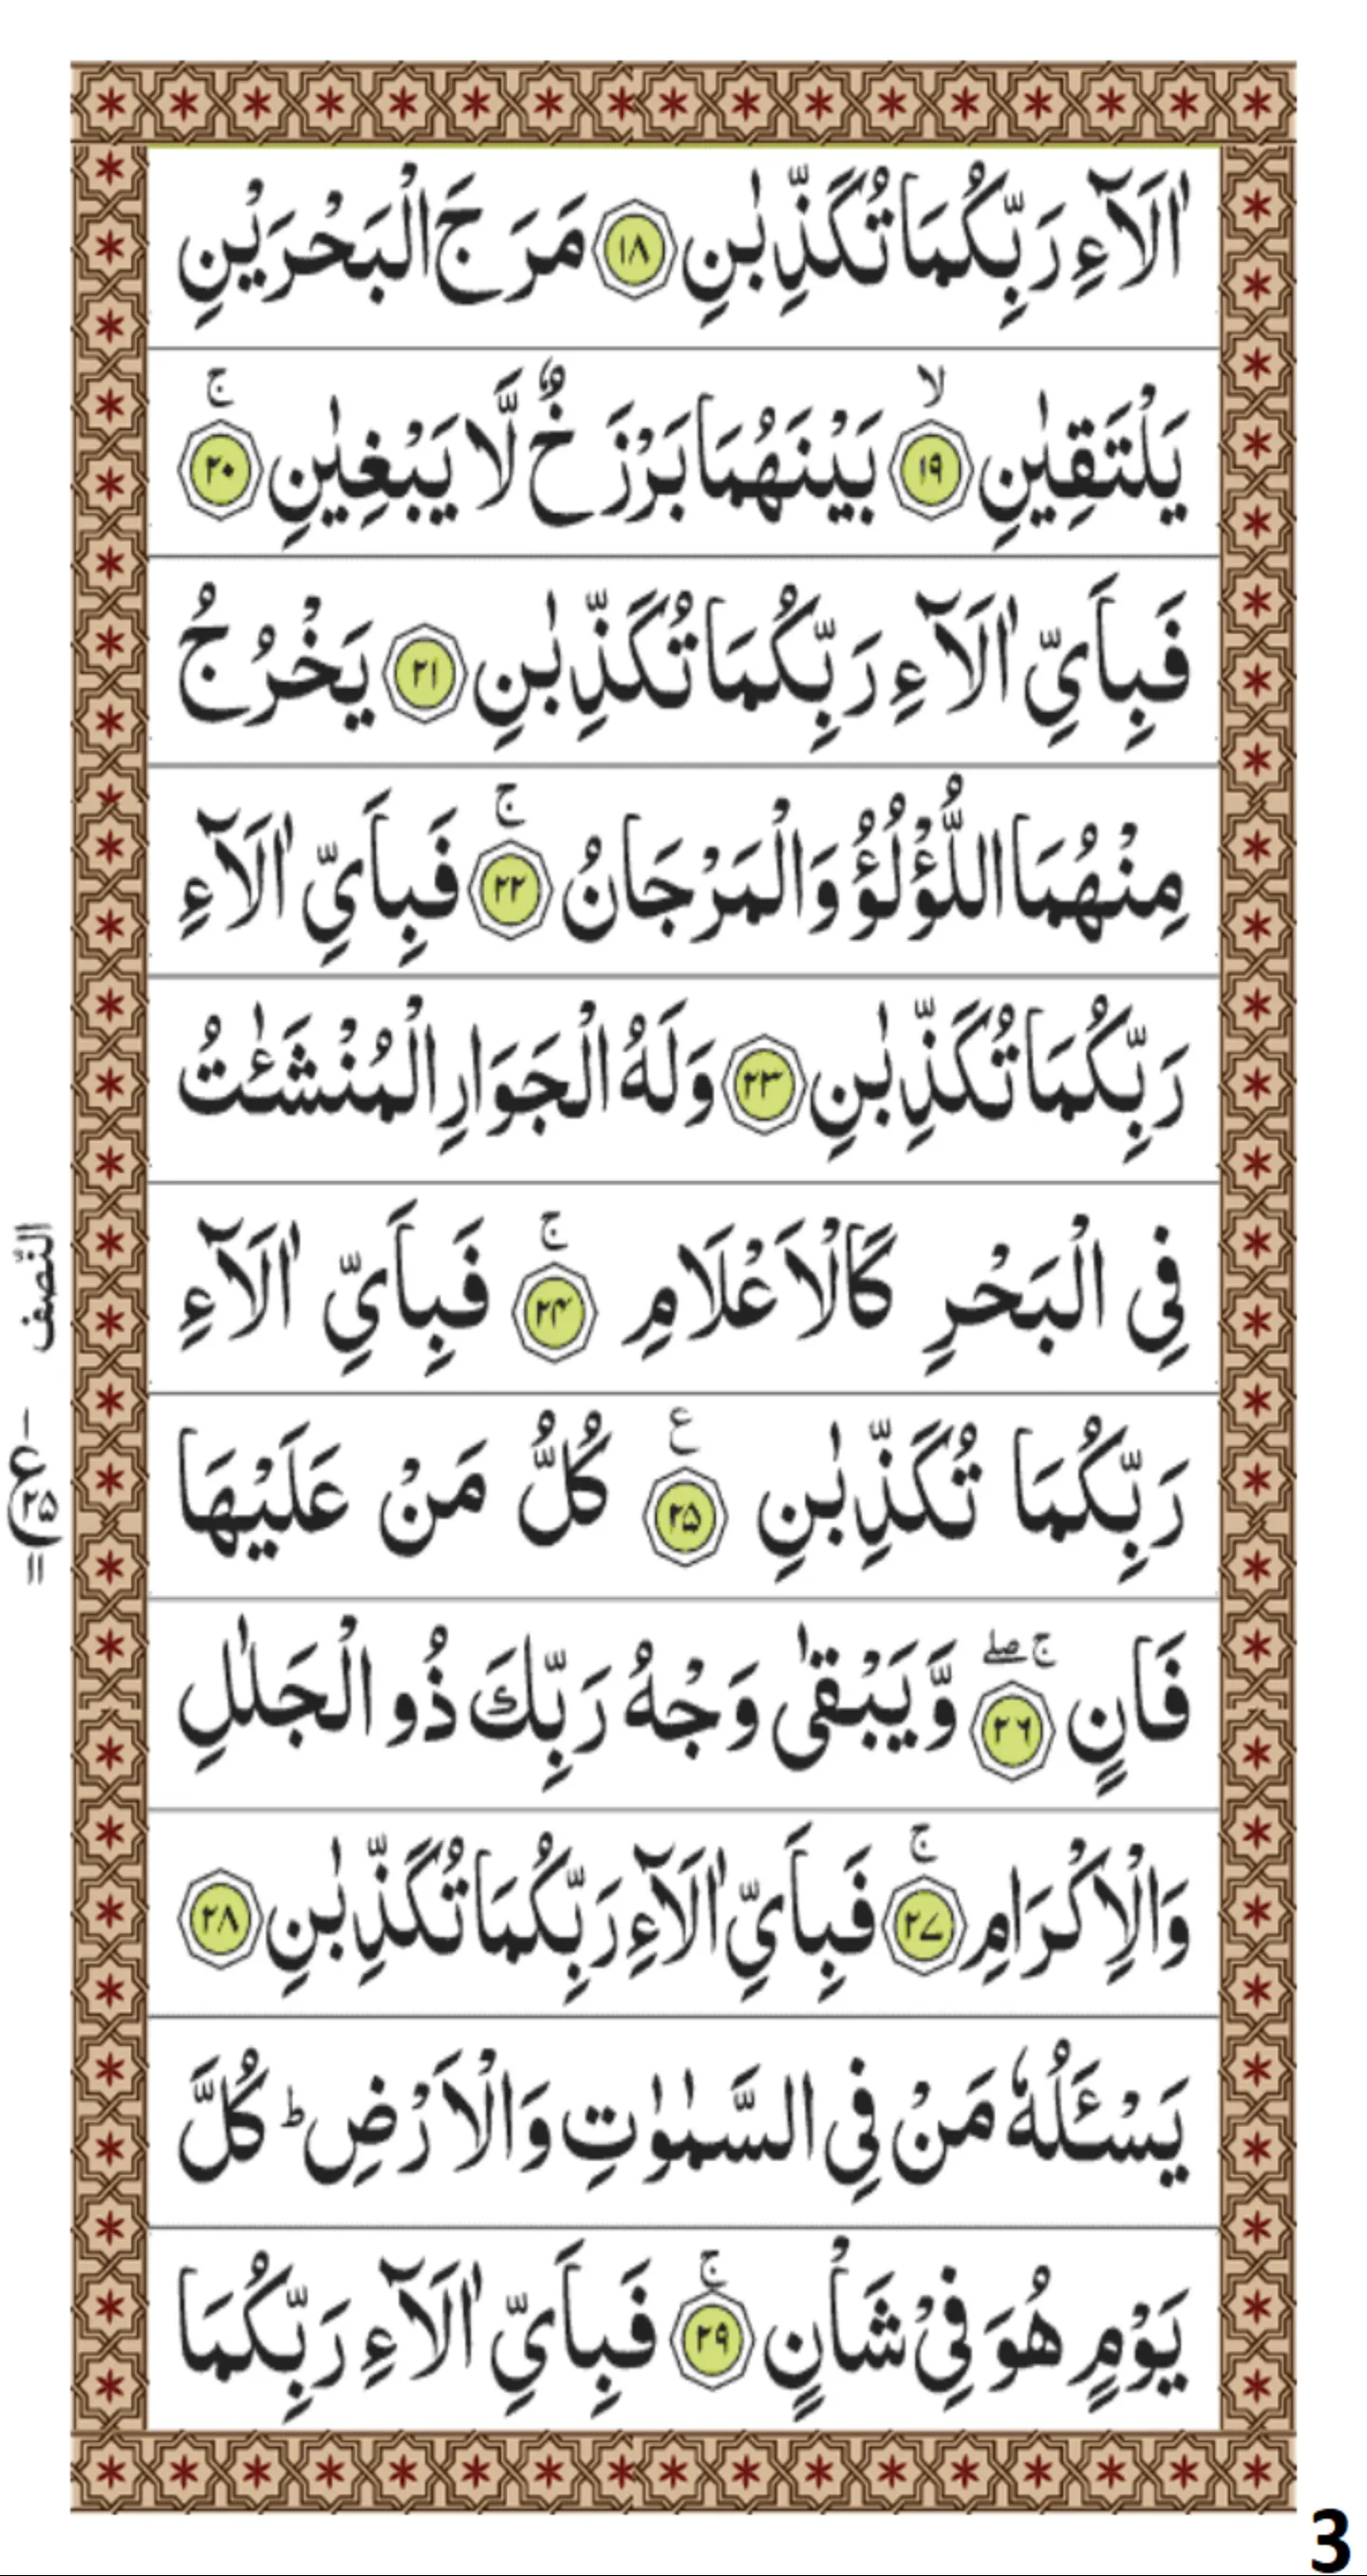 اٰلَآءِ رَبِّكُمَا تُكَذِّبٰنِ ۱۸ مَرَجَ الْبَحْرَيْنِ
يَلْتَقِيٰنِ ۱۹ۙ بَيْنَهُمَا بَرْزَخٌ لَّا يَبْغِيٰنِ ۲۰ۚ
فَبِاَىِّ اٰلَآءِ رَبِّكُمَا تُكَذِّبٰنِ ۲۱ يَخْرُجُ
مِنْهُمَا اللُّؤْلُؤُ وَالْمَرْجَانُ ۲۲ۚ فَبِاَىِّ اٰلَآءِ
رَبِّكُمَا تُكَذِّبٰنِ ۲۳ وَلَهُ الْجَوَارِ الْمُنْشَئٰتُ
فِى الْبَحْرِ كَالْاَعْلَامِ ۲۴ۚ فَبِاَىِّ اٰلَآءِ
رَبِّكُمَا تُكَذِّبٰنِ ۲۵ ع كُلُّ مَنْ عَلَيْهَا
فَانٍ ۲۶ ۚۖ وَّيَبْقٰى وَجْهُ رَبِّكَ ذُو الْجَلٰلِ
وَالْاِكْرَامِ ۲۷ۚ فَبِاَىِّ اٰلَآءِ رَبِّكُمَا تُكَذِّبٰنِ ۲۸
يَسْـَٔلُهٗ مَنْ فِى السَّمٰوٰتِ وَالْاَرْضِ ؕ كُلَّ
يَوْمٍ هُوَ فِىْ شَاْنٍ ۲۹ۚ فَبِاَىِّ اٰلَآءِ رَبِّكُمَا
النّصف
ع ۲۵ ۱۱
3